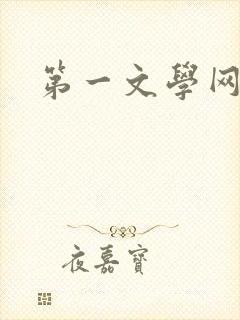 第一文學网
夜嘉寶